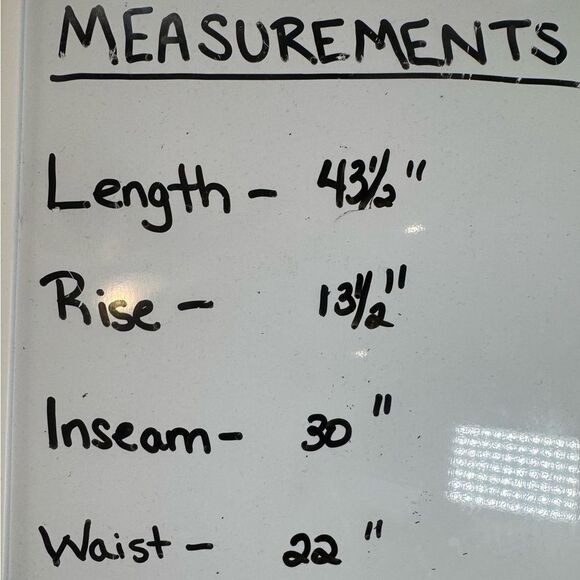 MEASUREMENTS
Length - 43½"
Rise - 13½"
Inseam - 30"
Waist - 22"